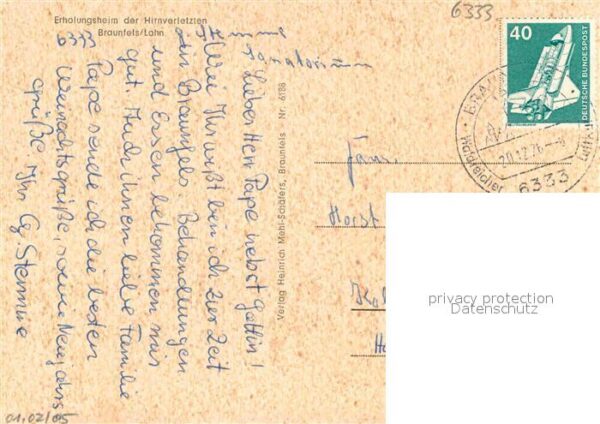 Erholungsheim der Hirnverletzten
Braunfels/Lahn
6333
Sanatorium
Lieber Herr Pape nebst Gattin!
Wie Ihr wißt bin ich zur Zeit
in Braunfels. Behandlungen
und Essen bekommen mir
gut. Auch ihnen liebe Familie
Pape sende ich die besten
Weihnachtsgrüße, sowie Neujahrs
grüße Ihr
Verlag Heinrich Mehl-Schäfers, Braunfels · Nr. 6138
6333
40
DEUTSCHE BUNDESPOST
6333
Fam.
Horst
privacy protection
Datenschutz
01.02/05